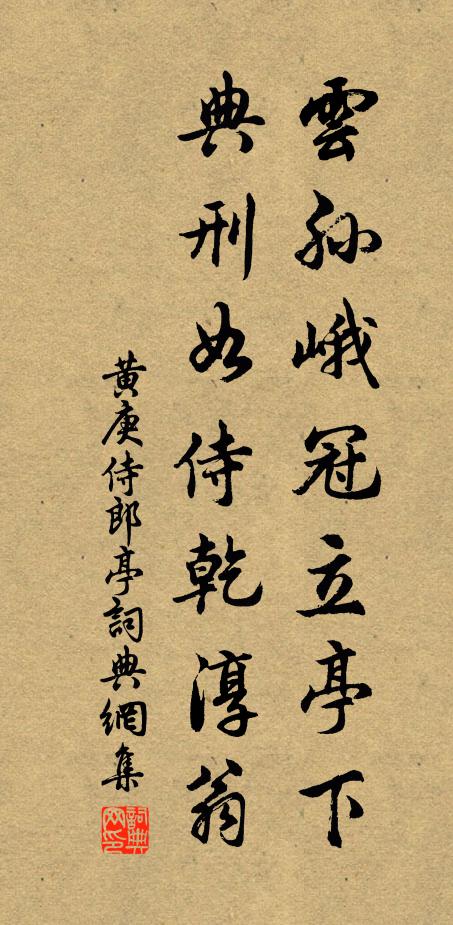 雲孫峨冠立亭下
典刑如侍乾淳翁
黃庚侍郎亭詞典網集
詞典网印